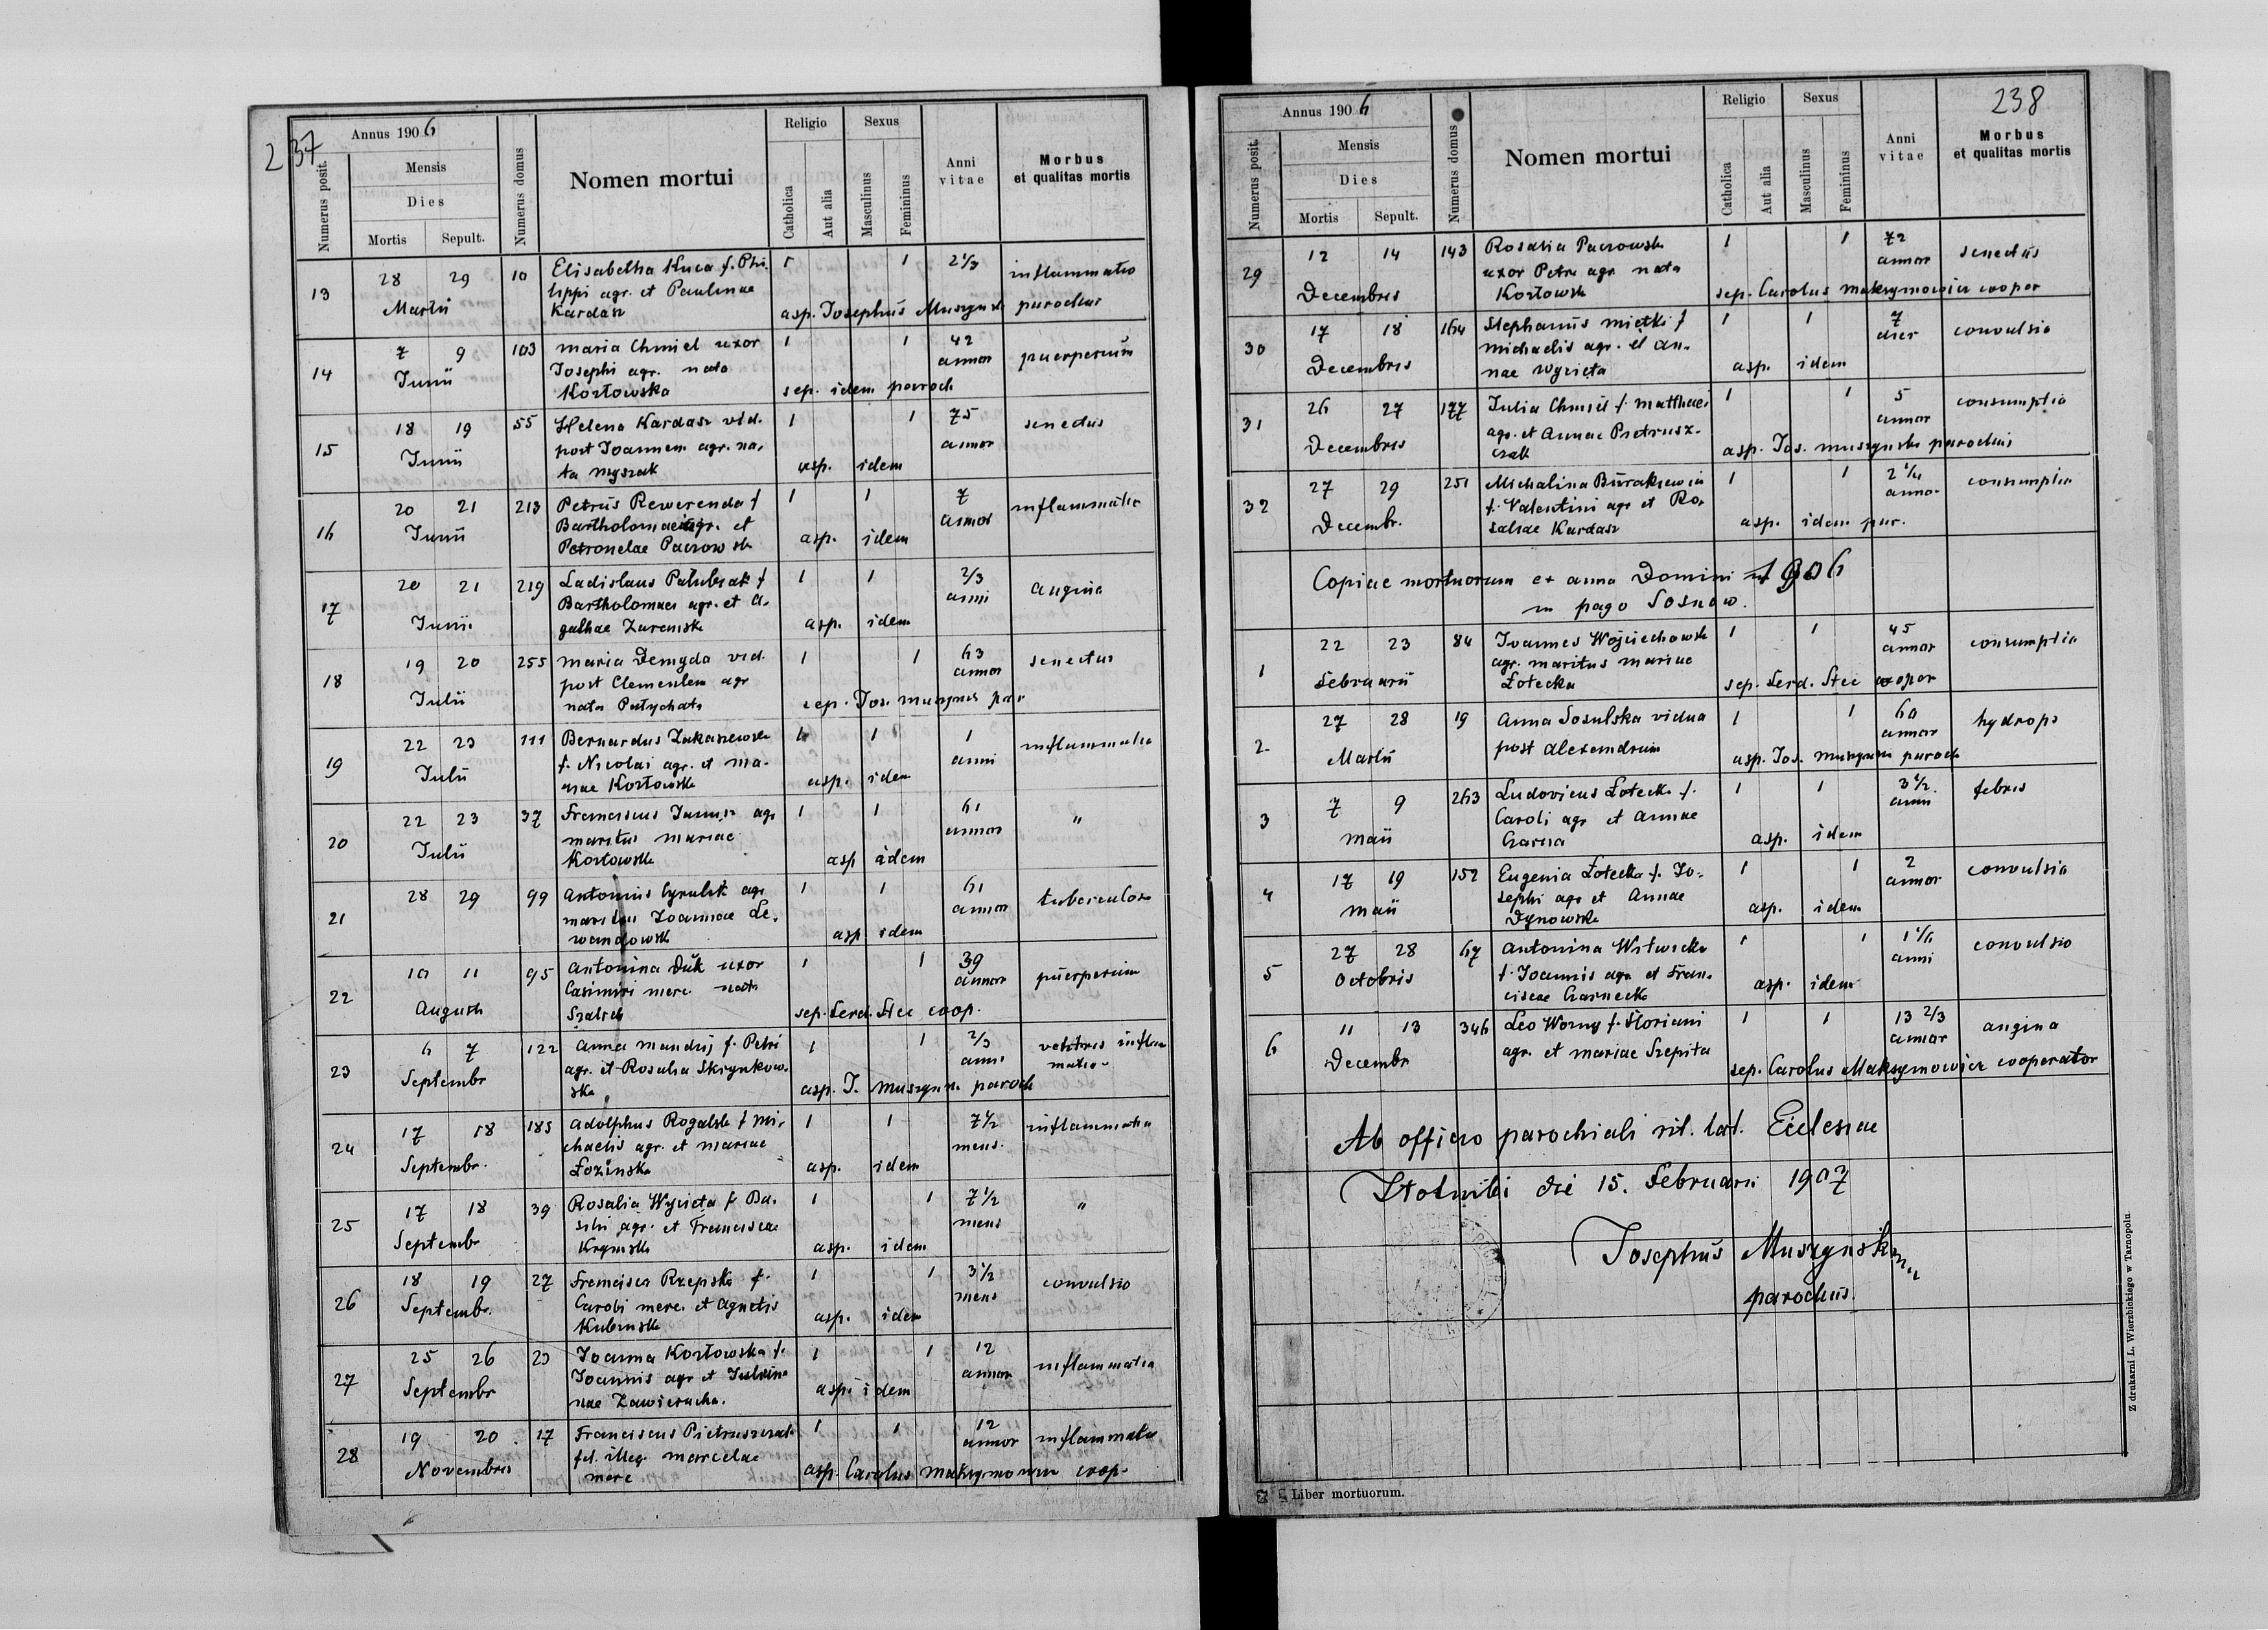 237
Annus 1906
Numerus posit.
Mensis
Dies
Mortis Sepult.
Numerus domus
Nomen mortui
Religio
Catholica
Aut alia
Sexus
Masculinus
Femininus
Anni vitae
Morbus
et qualitas mortis
13 28 29 10 Elisabetha Kuca f. Phi- 1 1 2 1/3 inflammatio
Martii lippi agr. et Paulinae
Kardasz asp. Josephus Muszynski parochus
14 7 9 103 Maria Chmiel uxor 1 1 42 puerperium
Junii Josephi agr. nata annor
Kozłowska sep. idem paroch
15 18 19 55 Helena Kardasz vid. 1 1 75 senectus
Junii post Joannem agr. na- annor
ta Myszak asp. idem
16 20 21 213 Petrus Rewerenda f 1 1 7 inflammatio
Junii Bartholomaei agr. et annor
Petronelae Paczowsk asp. idem
17 20 21 219 Ladislaus Pałubiak f 1 1 2/3 angina
Junii Bartholomaei agr. et A- anni
gathae Zaremsk asp. idem
18 19 20 255 Maria Demyda vid. 1 1 63 senectus
Julii post Clementem agr annor
nata Patychata sep. Jos. Muszyns par
19 22 23 111 Bernardus Łukaszewsk 1 1 1 inflammatio
Julii f. Nicolai agr. et Ma- anni
riae Kozłowsk asp. idem
20 22 23 37 Franciscus Janusz agr 1 1 61 "
Julii maritus Mariae annor
Kozłowsk asp idem
21 28 29 99 Antonius Cyrulik agr 1 1 61 tuberculos
maritus Joannae Le- annor
wandowsk asp idem
22 10 11 95 Antonina Duk uxor 1 1 39 puerperium
Augusti Casimiri merc. nata annor
sep. Ferd. Stec coop.
23 6 7 122 Anna Mandrij f. Petri 1 1 2/3 ventris inflam
Septembr agr. et Rosalia Skrzynkow- anni matio
ska asp. J. Muszyns. paroch
24 17 18 185 Adolphus Rogalsk f Mi- 1 1 7 1/2 inflammatio
Septembr. chaelis agr. et Mariae mens.
Łozinska asp. idem
25 17 18 39 Rosalia Wycieta f. Ba- 1 1 7 1/2 "
Septembr silii agr. et Franciscae mens
Krynisk asp. idem
26 18 19 27 Francisca Rzepska f. 1 1 3 1/2 convulsio
Septembr. Caroli merc. et Agnetis mens
Kubinsk asp. idem
27 25 26 23 Joanna Kozłowska f. 1 1 12 inflammatio
Septembr Joannis agr et Julian- annor
nae Zawierucha. asp. idem
28 19 20 17 Franciscus Pietruszczak 1 1 12 inflammatio
Novembris fil. illeg. Marcelae annor
merc asp. Carolus Maksymowicz coop.
238
Annus 1906
Numerus posit.
Mensis
Dies
Mortis Sepult.
Numerus domus
Nomen mortui
Religio
Catholica
Aut alia
Sexus
Masculinus
Femininus
Anni vitae
Morbus
et qualitas mortis
29 12 14 143 Rosalia Paczowsk 1 1 72 senectus
Decembris uxor Petri agr nata annor
Kozłowsk sep. Carolus Maksymowicz cooper
30 17 18 164 Stephanus Miętki f 1 1 7 convulsio
Decembris Michaelis agr. et An- dier
nae Wycieta asp. idem
31 26 27 177 Julia Chmiel f. Matthaei 1 1 5 consumptio
Decembris agr. et Annae Pietrusz- annor
czak asp. Jos. Muszynski parochus
32 27 29 251 Michalina Burakiewicz 1 1 2 1/4 consumptio
Decembr. f. Valentini agr et Ro- annor
saliae Kardasz asp. idem par.
Copiae mortuorum ex anno Domini 1906
in pago Sosnow.
1 22 23 84 Joannes Wojciechowsk 1 1 45 consumptio
Februarii agr. maritus Mariae annor
Łotecka sep. Ferd. Stec cooper
2 27 28 19 Anna Sosulska vidua 1 1 60 hydrops
Martii post Alexandrum annor
asp. Jos. Muszynski paroch
3 7 9 263 Ludovicus Łotecki f. 1 1 3 1/2 febris
Maii Caroli agr et Annae anni
Czarna asp. idem
4 17 19 152 Eugenia Łotecka f. Jo- 1 1 2 convulsio
Maii sephi agr et Annae annor
Dynowska asp. idem
5 27 28 67 Antonina Witwicka 1 1 1 1/6 convulsio
Octobris f. Joannis agr et Fran- anni
ciscae Czarnecka asp. idem
6 11 13 346 Leo Worny f. Floriani 1 1 13 2/3 angina
Decembr agr. et Mariae Szepita annor
sep. Carolus Maksymowicz cooperator
Ab officio parochiali rit. lat. Ecclesiae
Złotniki die 15. Februarii 1907
Josephus Muszynski
parochus.
Liber mortuorum.
Z drukarni L. Wierzbickiego w Tarnopolu.